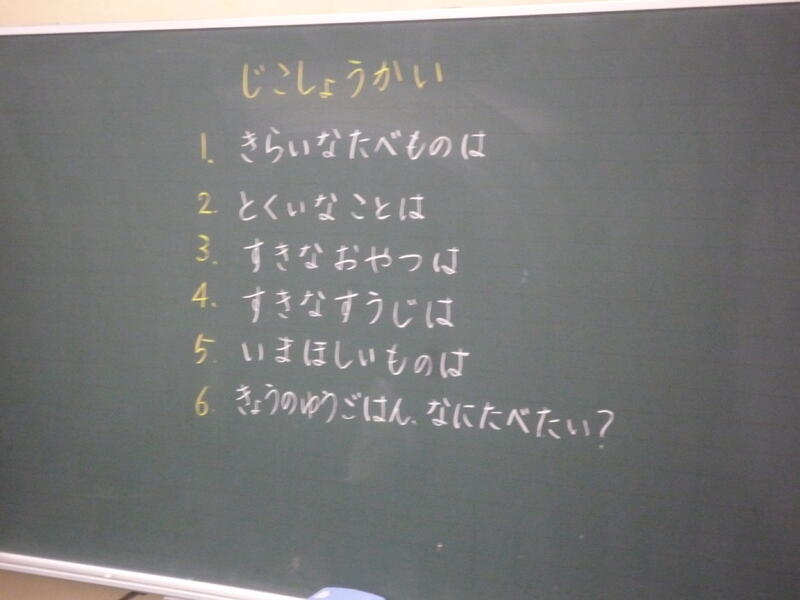 じこしょうかい
1. きらいなたべものは
2. とくいなことは
3. すきなおやつは
4. すきなすうじは
5. いまほしいものは
6. きょうのゆうごはん、なにたべたい?